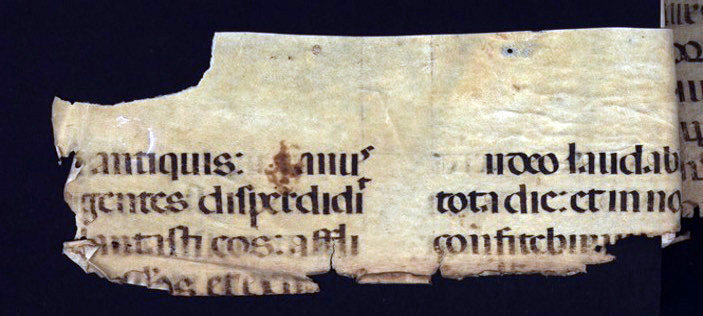 antiquis: manus
gentes disperdidit
antasti eos: affli
los et
in deo laudab
tota die: et in no
confitebim